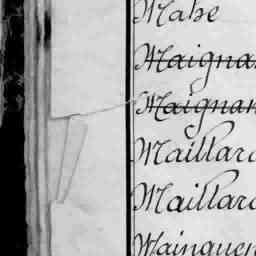 Mahe
Maignan
Maignan
Maillard
Maillard
Mainguen